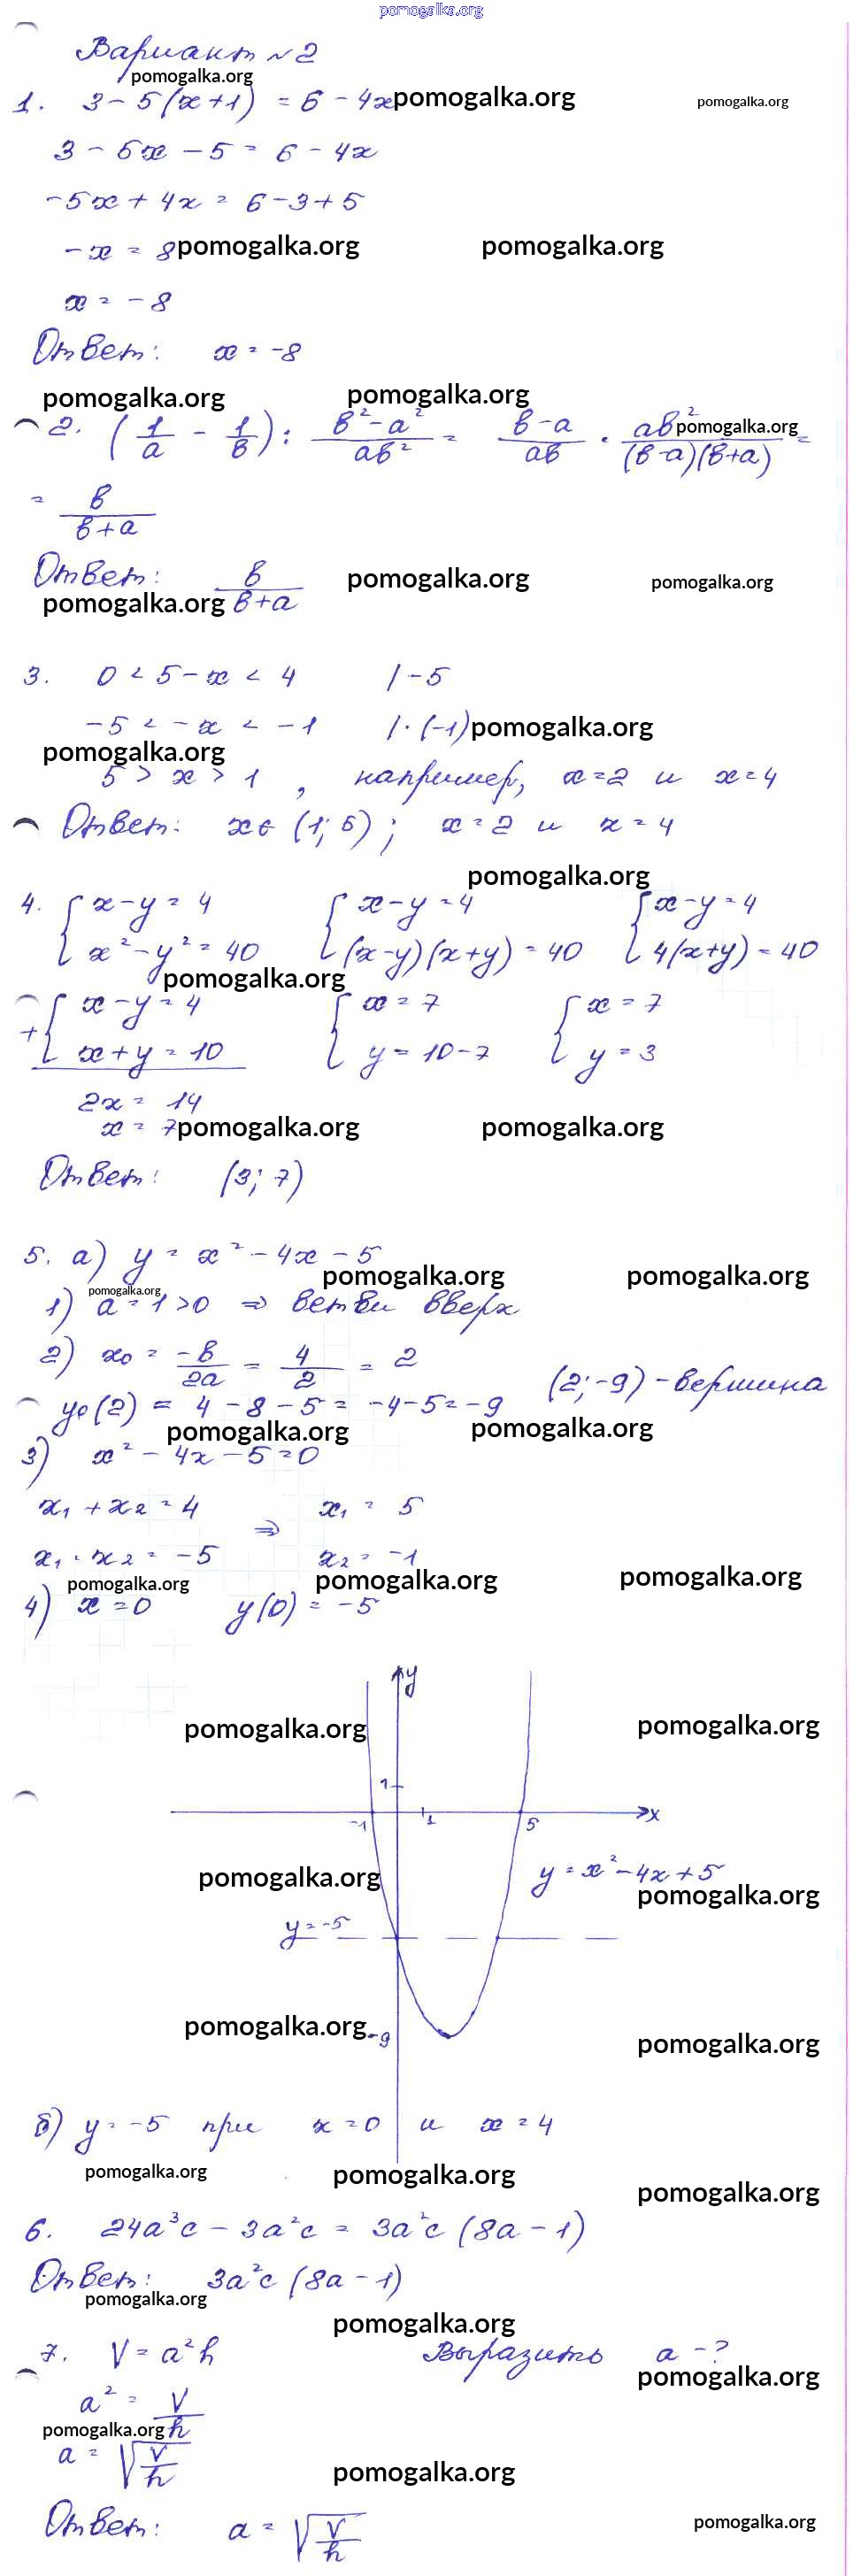 pomogalka.org
Вариант №2
pomogalka.org
1. 3 - 5(x+1) = 6 - 4x pomogalka.org pomogalka.org
3 - 5x - 5 = 6 - 4x
-5x + 4x = 6 - 3 + 5
-x = 8 pomogalka.org pomogalka.org
x = -8
Ответ: x = -8
pomogalka.org pomogalka.org
2. (1/a - 1/в) : (в² - a²)/(aв²) = (в - a)/(aв) · aв²/((в-a)(в+a)) = pomogalka.org
= в/(в+a)
Ответ: в/(в+a) pomogalka.org pomogalka.org
pomogalka.org
3. 0 < 5 - x < 4 | -5
-5 < -x < -1 | · (-1) pomogalka.org
pomogalka.org
5 > x > 1, например, x = 2 и x = 4
Ответ: x ∈ (1; 5); x = 2 и x = 4
pomogalka.org
4. { x - y = 4 { x - y = 4 { x - y = 4
x² - y² = 40 (x-y)(x+y) = 40 4(x+y) = 40
pomogalka.org
+ { x - y = 4 { x = 7 { x = 7
x + y = 10 y = 10 - 7 y = 3
2x = 14
x = 7 pomogalka.org pomogalka.org
Ответ: (3; 7)
5. а) y = x² - 4x - 5
pomogalka.org pomogalka.org
pomogalka.org
1) a = 1 > 0 ⇒ ветви вверх
2) x₀ = -в/2a = 4/2 = 2
(2; -9) - вершина
y₀(2) = 4 - 8 - 5 = -4 - 5 = -9
pomogalka.org pomogalka.org
3) x² - 4x - 5 = 0
x₁ + x₂ = 4 ⇒ x₁ = 5
x₁ · x₂ = -5 x₂ = -1
pomogalka.org pomogalka.org pomogalka.org
4) x = 0 y(0) = -5
y
pomogalka.org pomogalka.org
1
-1 1 5 x
pomogalka.org y = x² - 4x + 5
pomogalka.org
y = -5
pomogalka.org -9 pomogalka.org
б) y = -5 при x = 0 и x = 4
pomogalka.org pomogalka.org pomogalka.org
6. 24a³c - 3a²c = 3a²c (8a - 1)
Ответ: 3a²c (8a - 1)
pomogalka.org
pomogalka.org
7. V = a²h Выразить a - ?
pomogalka.org
a² = V/h
pomogalka.org
a = √(V/h)
pomogalka.org
Ответ: a = √(V/h) pomogalka.org